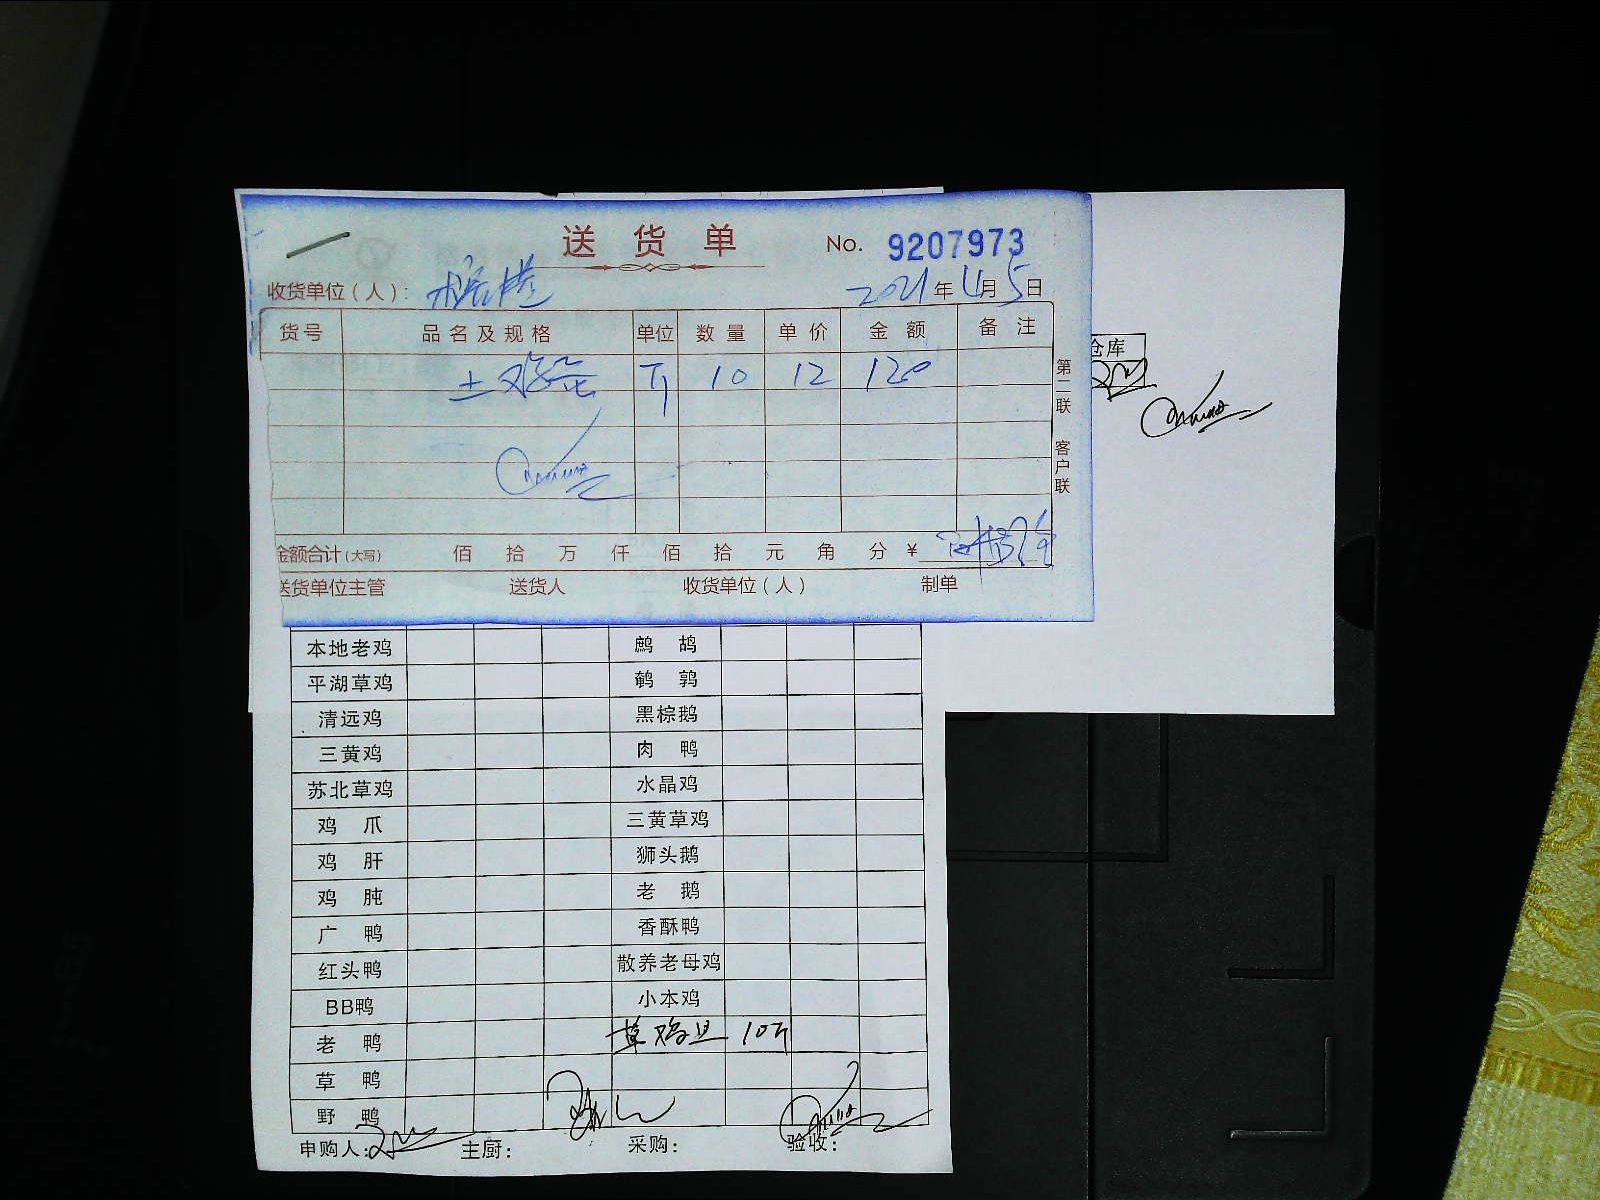 送货单 No. 9207973
收货单位(人): 2021年4月5日
货号 品名及规格 单位 数量 单价 金额 备注
土鸡蛋 斤 10 12 120
第二联 客户联
金额合计(大写) 佰 拾 万 仟 佰 拾 元 角 分 ¥
送货单位主管 送货人 收货单位(人) 制单
仓库
本地老鸡 鹧鸪
平湖草鸡 鹌鹑
清远鸡 黑棕鹅
三黄鸡 肉鸭
苏北草鸡 水晶鸡
鸡爪 三黄草鸡
鸡肝 狮头鹅
鸡肫 老鹅
广鸭 香酥鸭
红头鸭 散养老母鸡
BB鸭 小本鸡
老鸭 草鸡旦 10斤
草鸭
野鸭
申购人: 主厨: 采购: 验收: